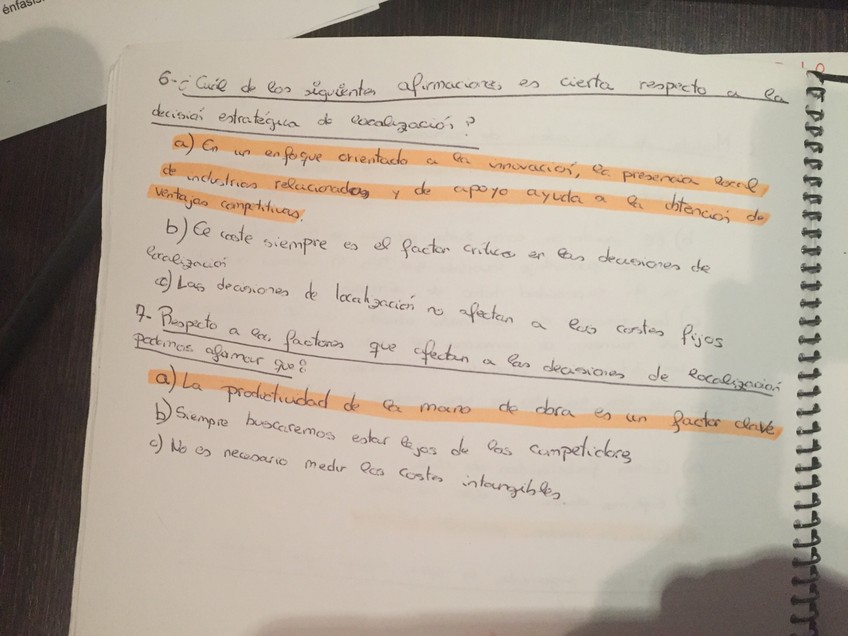 énfasis
6-¿Cuál de los siguientes afirmaciones es cierta respecto a la
decisión estratégica de localización?
a) En un enfoque orientado a la innovación, la presencia local
de industrias relacionadas y de apoyo ayuda a la obtención de
ventajas competitivas.
b) El coste siempre es el factor crítico en las decisiones de
localización
c) Las decisiones de localización no afectan a los costes fijos
7- Respecto a los factores que afectan a las decisiones de localización
podemos afirmar que?
a) La productividad de la mano de obra es un factor clave
b) Siempre buscaremos estar lejos de los competidores
c) No es necesario medir los costes intangibles.